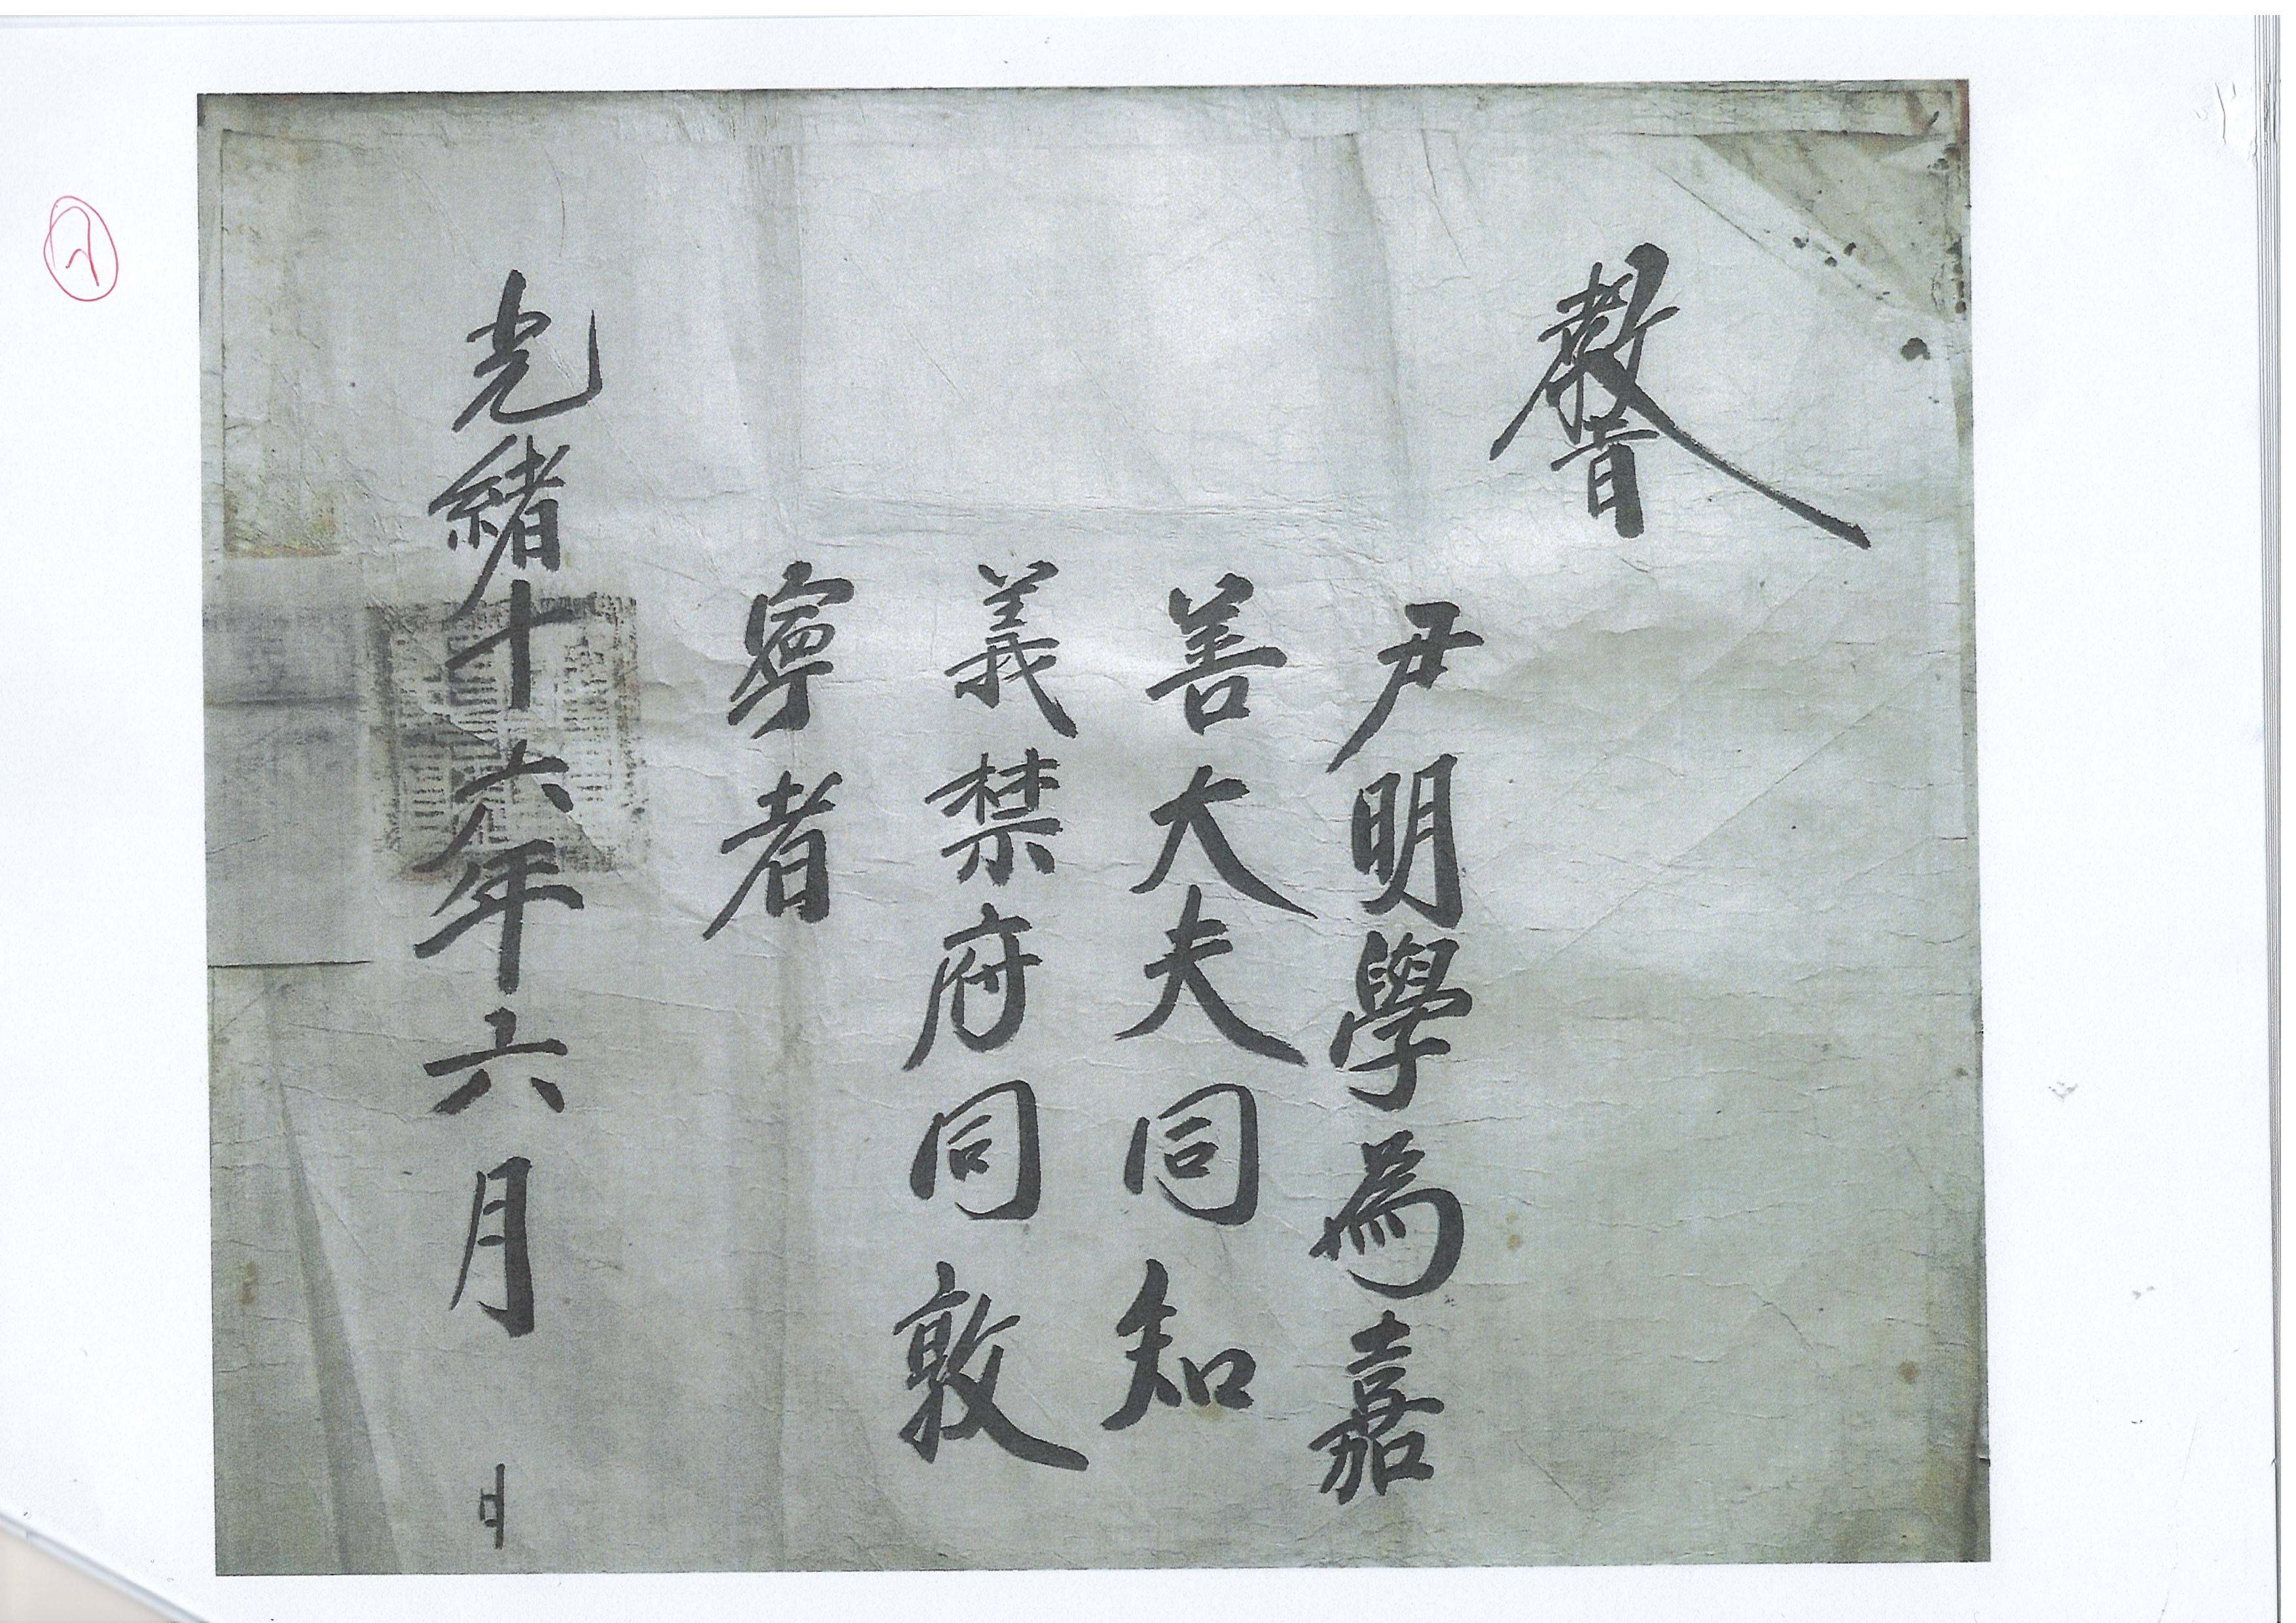 敎旨
尹明學為嘉
善大夫同知
義禁府同敦
寧者
光緖十六年六月 日